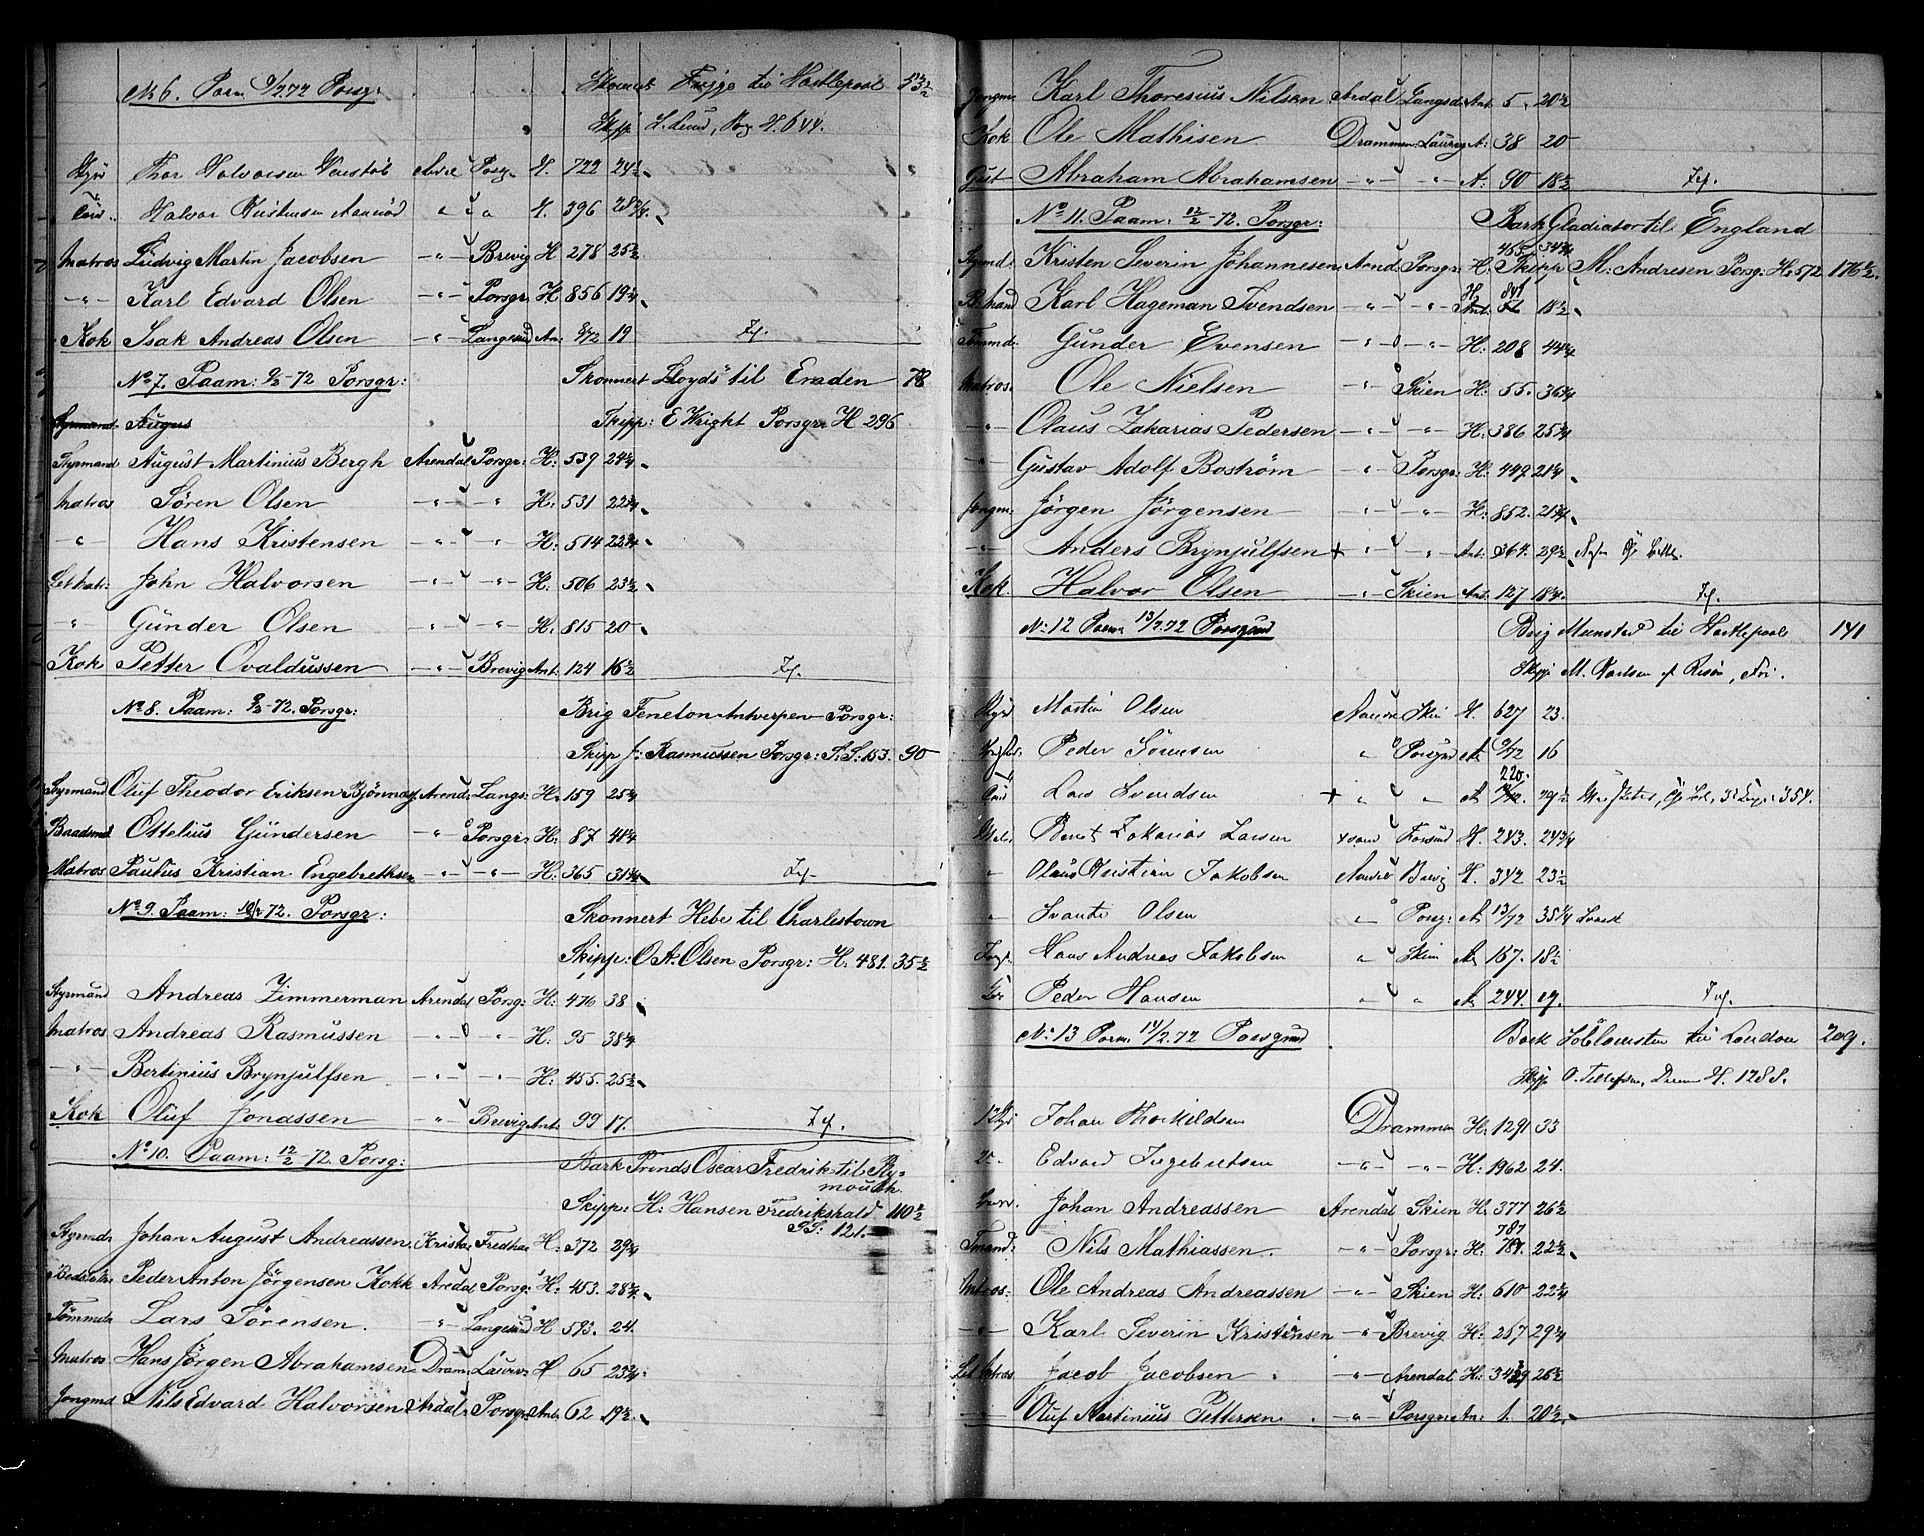 No 6. Paam. 9/2.72 Porsgr
Skonnert Frigga til Hartlepool 53½
Skpp L. Lund, Porsg H. 644.
Styrm Thor Halvorsen Arendal Porsgr H. 722 24½
Halvor Kristensen " " H. 396
Matros Ludvig Martin Jacobsen -"- Brevig H 278 25½
-"- Karl Edvard Olsen -"- Porsgr. H 856 19¼
Kok Isak Andreas Olsen -"- Langesund An: 8/72 19
No 7. Paam: 9/2-72 Porsgr:
Skonnert "Lloyds" til Emden 78
Styrmand August
Skipp: E Wright Porsgr. H 296
Styrmand August Martinius Bergh Arendal Porsgr: H: 539 24¼
Matros Sören Olsen -"- -"- H: 531 22¾
-"- Hans Kristensen -"- -"- H: 514 22¾
Letmatr: John Halvorsen -"- -"- H: 506 23½
" Gunder Olsen -"- -"- H: 815 20
Kok Petter Ovaldussen -"- Brevig Ant: 124 16½
No 8. Paam: 9/2-72. Porsgr:
Brig Feneton Antverpen Porsgr:
Skipp J: Rasmussen Porsgr: S. S: 153. 90
Styrmand Oluf Theodor Eriksen Björnaas Arend: Langs: H: 159 25¾
Baadsmd Ottelius Gundersen -"- Porsgr: H: 87 41¼
Matros Paulus Kristian Engebrethsen -"- -"- H: 365 31¼
No 9. Paam: 10/2 72. Porsgr:
Skonnert Hebe til Charlestown
Skipp: O A. Olsen Porsgr: H: 481. 35½
Styrmand Andreas Zimmerman Arendal Porsgr: H: 476 38
Matros Andreas Rasmussen -"- -"- H: 95 38¼
-"- Bertinius Brynjulfsen -"- -"- H: 455. 25½
Kok Oluf Jonassen -"- Brevig Ant: 99 17.
No 10. Paam: 12/2-72. Porsg:
Bark Prinds Oscar Fredrik til Ply-
mouth
Skipp: H: Hansen Fredrikshald 110½
S.S: 121.
Styrmd: Johan August Andreassen Kristia: Fredha: H: 372 29¼
Peder Anton Jörgensen Kokk Ardal Porsgr: H: 453. 28¾
Tömmdr Lars Sörensen. -"- Langesund H 593. 24.
Matros Hans Jörgen Abrahamsen Dram: Laurv: H 65 23¾
Jongmd Nils Edvard Halvorsen Ardal: Porsgr: Ant: 62 19½
Jongm. Karl Thoresius Nilsen Ardal Langsd: Ant: 5. 20½
Kok Ole Mathisen Drammen Laurvg A: 38 20
Gut Abraham Abrahamsen -"- -"- A: 90 18½
No 11. Paam: 12/2-72. Porsgr:
Bark Gladiator til England
465 34¾
Styrmd: Kristen Severin Johannesen Arnd: Porsgr: H: Skipp M: Andresen Porsg: H: 572 176½
H: 841
Karl Hageman Svendsen -"- -"- 18½
Tömmd: Gunder Evensen -"- -"- H: 208 44¾
Matros. Ole Nielsen -"- Skien H: 55. 36¼
-"- Olaus Zakarias Pedersen -"- -"- H: 386 25¾
-"- Gustav Adolf Boström -"- Porsgr: H: 449. 21¾
Jongm: Jörgen Jörgensen -"- -"- H: 852. 21¾
-"- Anders Brynjulfsen + -"- -"- Ant: 364. 29½
Kok Halvor Olsen -"- Skien Ant: 127 18¾.
No 12 Paam. 13/2.72 Porsgrund
Brig til Hartlepool 141
Skipp M. Karlsen
Styrm Martin Olsen Arendal Skien H. 627 23.
Peder Sörensen " Porsgrd A. 9/72 16
220.
Lars Svendsen + " " A. 29½
Bernt Zakarias Larsen H. 243. 24¾
" Olaus Kristian Jakobsen Arendal Brevig H. 342 23½
" Svante Olsen " Porsg: A 13/72 35¼ Svensk
Hans Andreas Jakobsen " Skien A 167. 18½
Peder Hansen " " A 244. 19.
No 13 Paam. 14/2.72 Porsgrund
Bark til London 209.
Skipp O. Tellefsen, Dram H. 1288.
1 Styr Johan Thorkildsen Drammen H: 1291 33
2 - Edvard Ingebretsen -"- -"- H: 1962 24.
Johan Andreassen Arendal Skien H: 377 26½
787
Tmand: Nils Mathiassen -"- Porsgr: H: 22½
Matros: Ole Andreas Andreassen -"- Skien H: 610 22¾
-"- Karl Severin Kristensen -"- Brevig H: 267 29¼
Let Matros Jacob Jacobsen -"- Arendal H: 26½
-"- Oluf Martinius Pettersen -"- Porsgr: An: 1. 20½